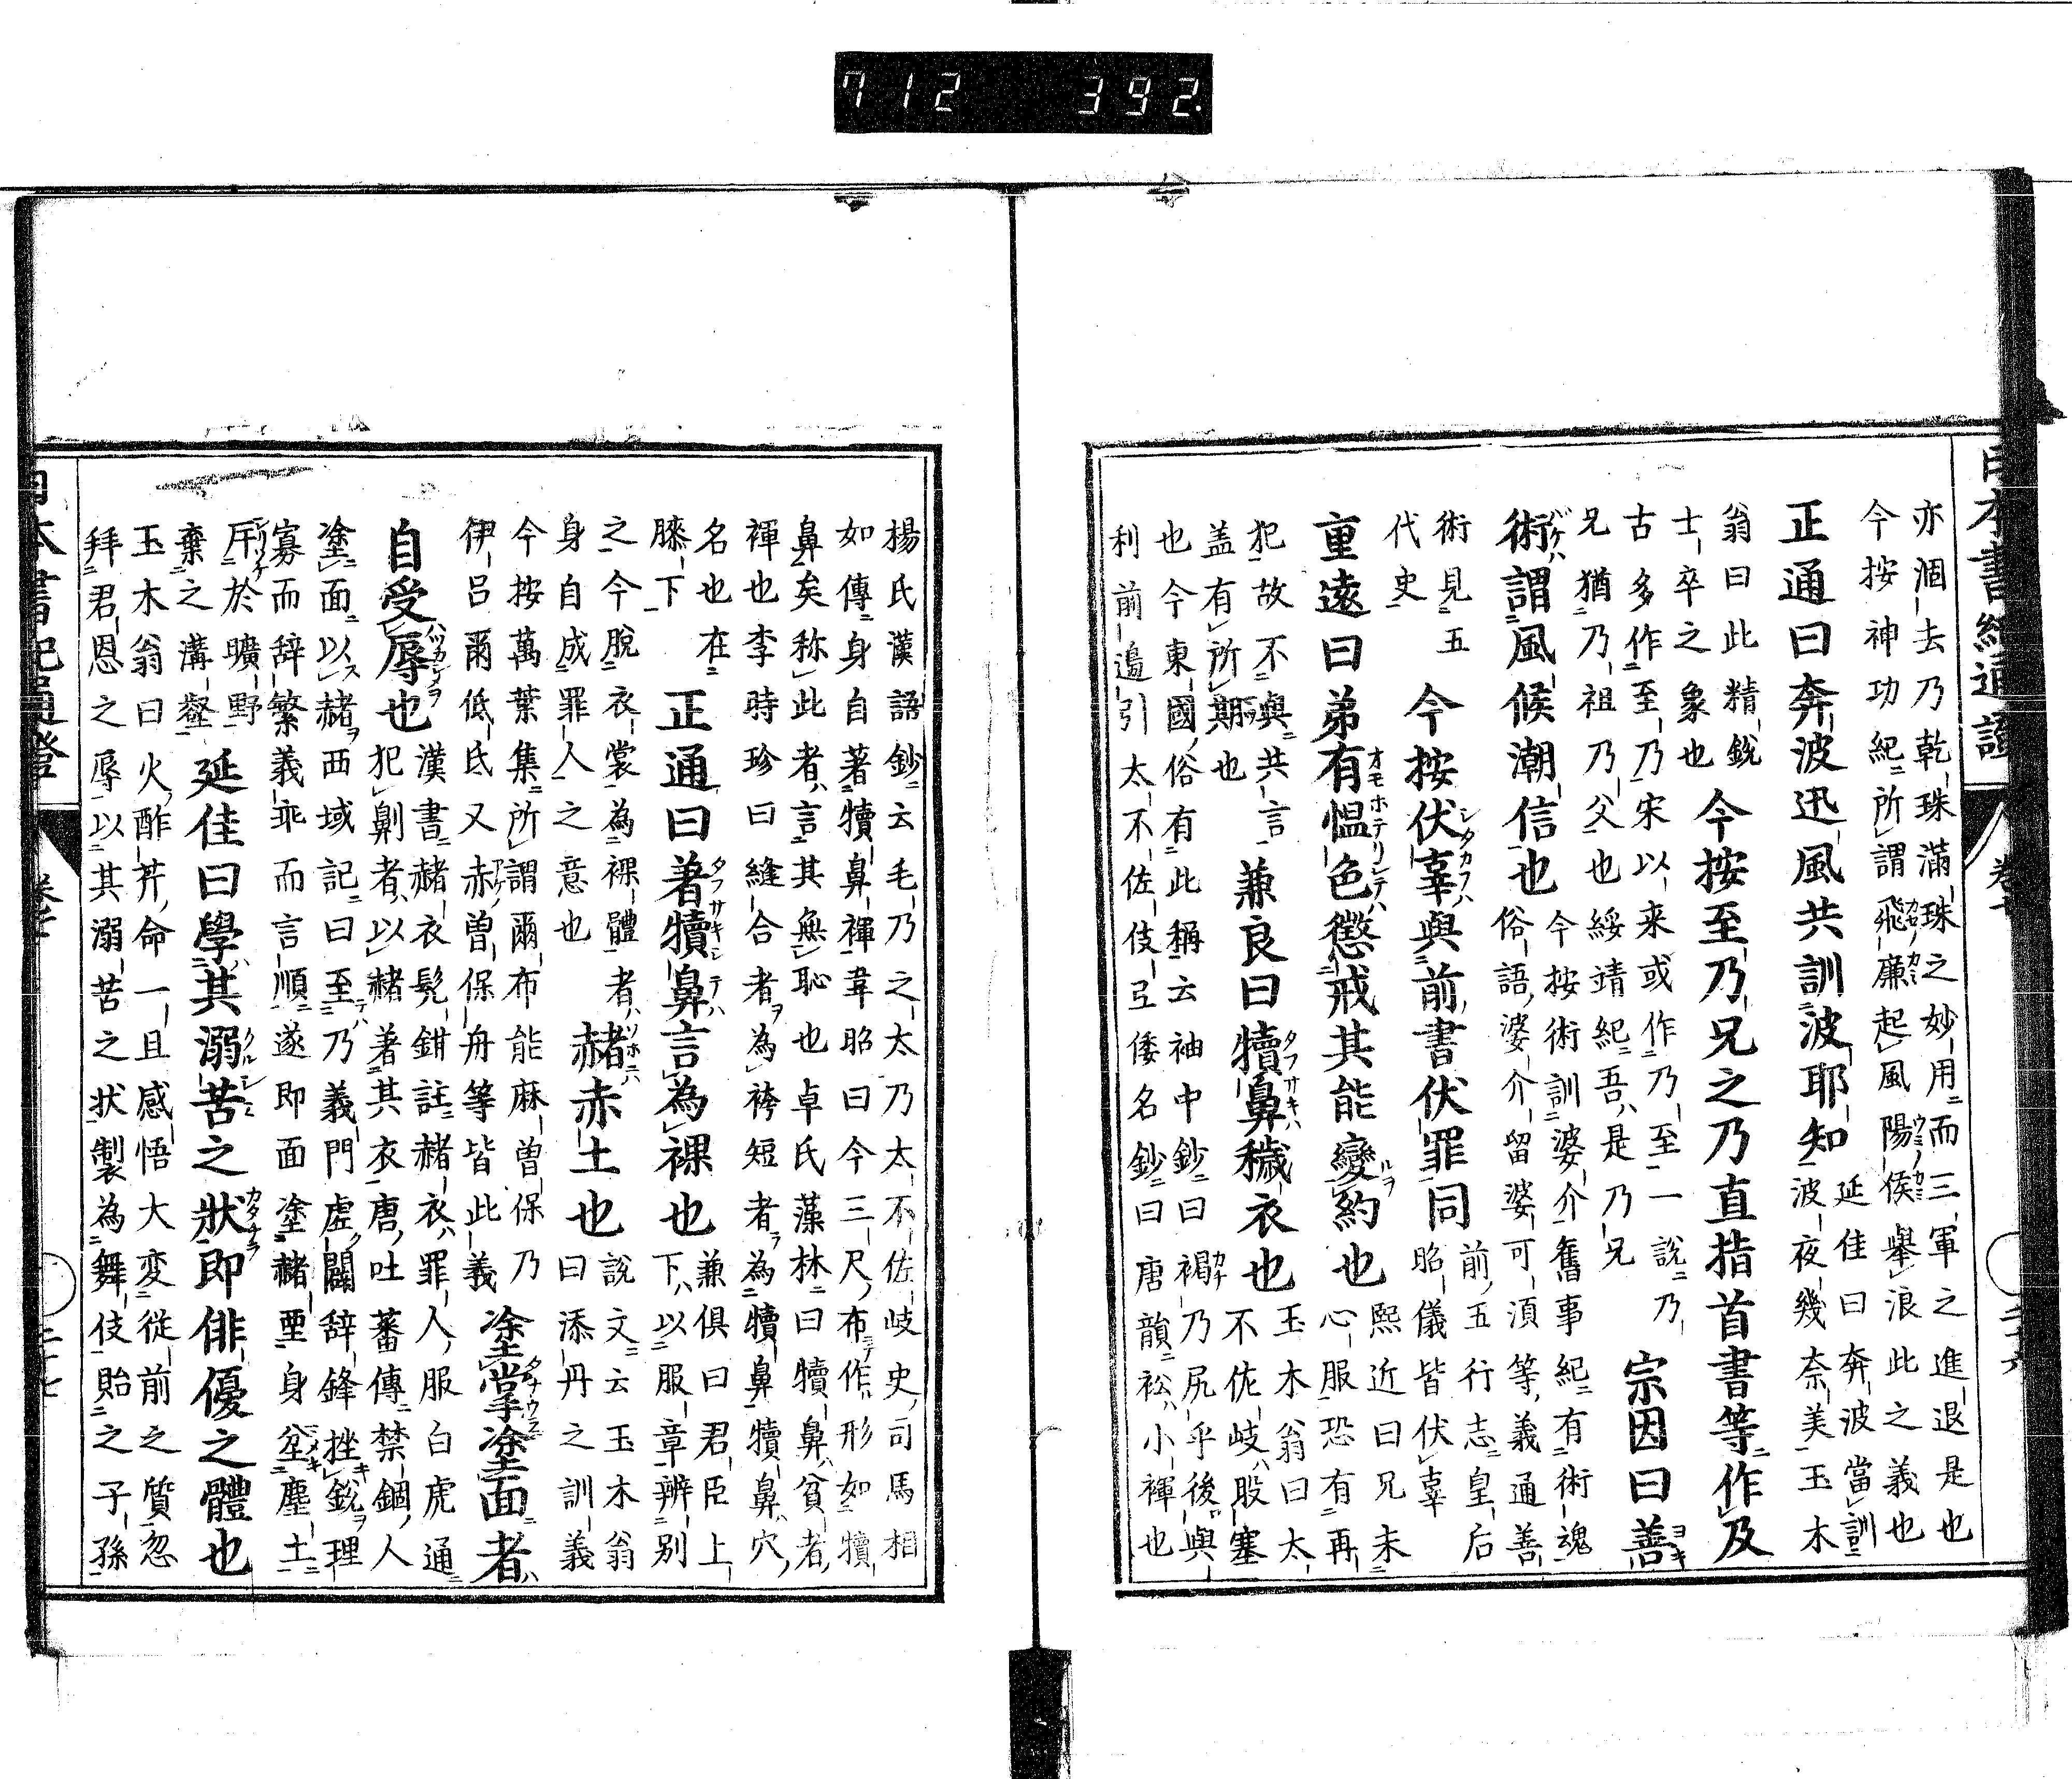 712 392
日本書紀通證 卷七 二十六
亦涸去乃乾珠滿珠之妙用而三軍之進退是也
今按神功紀所謂飛廉起風陽侯舉浪此之義也
正通曰奔波迅風共訓波耶知 延佳曰奔波當訓
波夜幾奈美玉木
翁曰此精銳
士卒之象也 今按至乃兄之乃直指首書等作及
古多作至乃宋以来或作乃至一說乃
兄猶乃祖乃父也綏靖紀吾是乃兄 宗因曰善
術謂風候潮信也 今按術訓婆介舊事紀有術魂
俗語婆介留婆可須等義通善
術見五
代史 今按伏辜與前書伏罪同 前五行志皇后
昭儀皆伏辜
重遠曰弟有慍色懲戒其能變約也 熙近曰兄未
心服恐有再
犯故不與共言
盖有所期也 兼良曰犢鼻穢衣也 玉木翁曰太
不佐岐股塞
也今東國俗有此稱云袖中鈔曰褐乃尻乎後與
利前邉引太不佐伎㠯倭名鈔曰唐韻衳小褌也
楊氏漢語鈔云毛乃之太乃太不佐岐史司馬相
如傳身自著犢鼻褌韋昭曰今三尺布作形如犢
鼻矣称此者言其無恥也卓氏藻林曰犢鼻貧者
褌也李時珍曰縫合者為袴短者為犢鼻犢鼻穴
名也在
膝下 正通曰著犢鼻言為裸也 兼倶曰君臣上
下以服章辨別
之今脫衣裳為裸體者
身自成罪人之意也 赭赤土也 說文云玉木翁
曰添丹之訓義
今按萬葉集所謂爾布能麻曽保乃
伊呂爾低氐又赤曽保舟等皆此義 塗掌塗面者
自受辱也 漢書赭衣髡鉗註赭衣罪人服白虎通
犯劓者以赭著其衣唐吐蕃傳禁錮人
塗面以赭西域記曰至乃義門虚闢辞鋒挫銳理
寡而辞繁義乖而言順遂即面塗赭堊身坌塵土
斥於曠野
棄之溝壑 延佳曰學其溺苦之狀即俳優之體也
玉木翁曰火酢芹命一旦感悟大変従前之質忽
拜君恩之辱以其溺苦之状製為舞伎貽之子孫
日本書紀通證 卷七 二十七